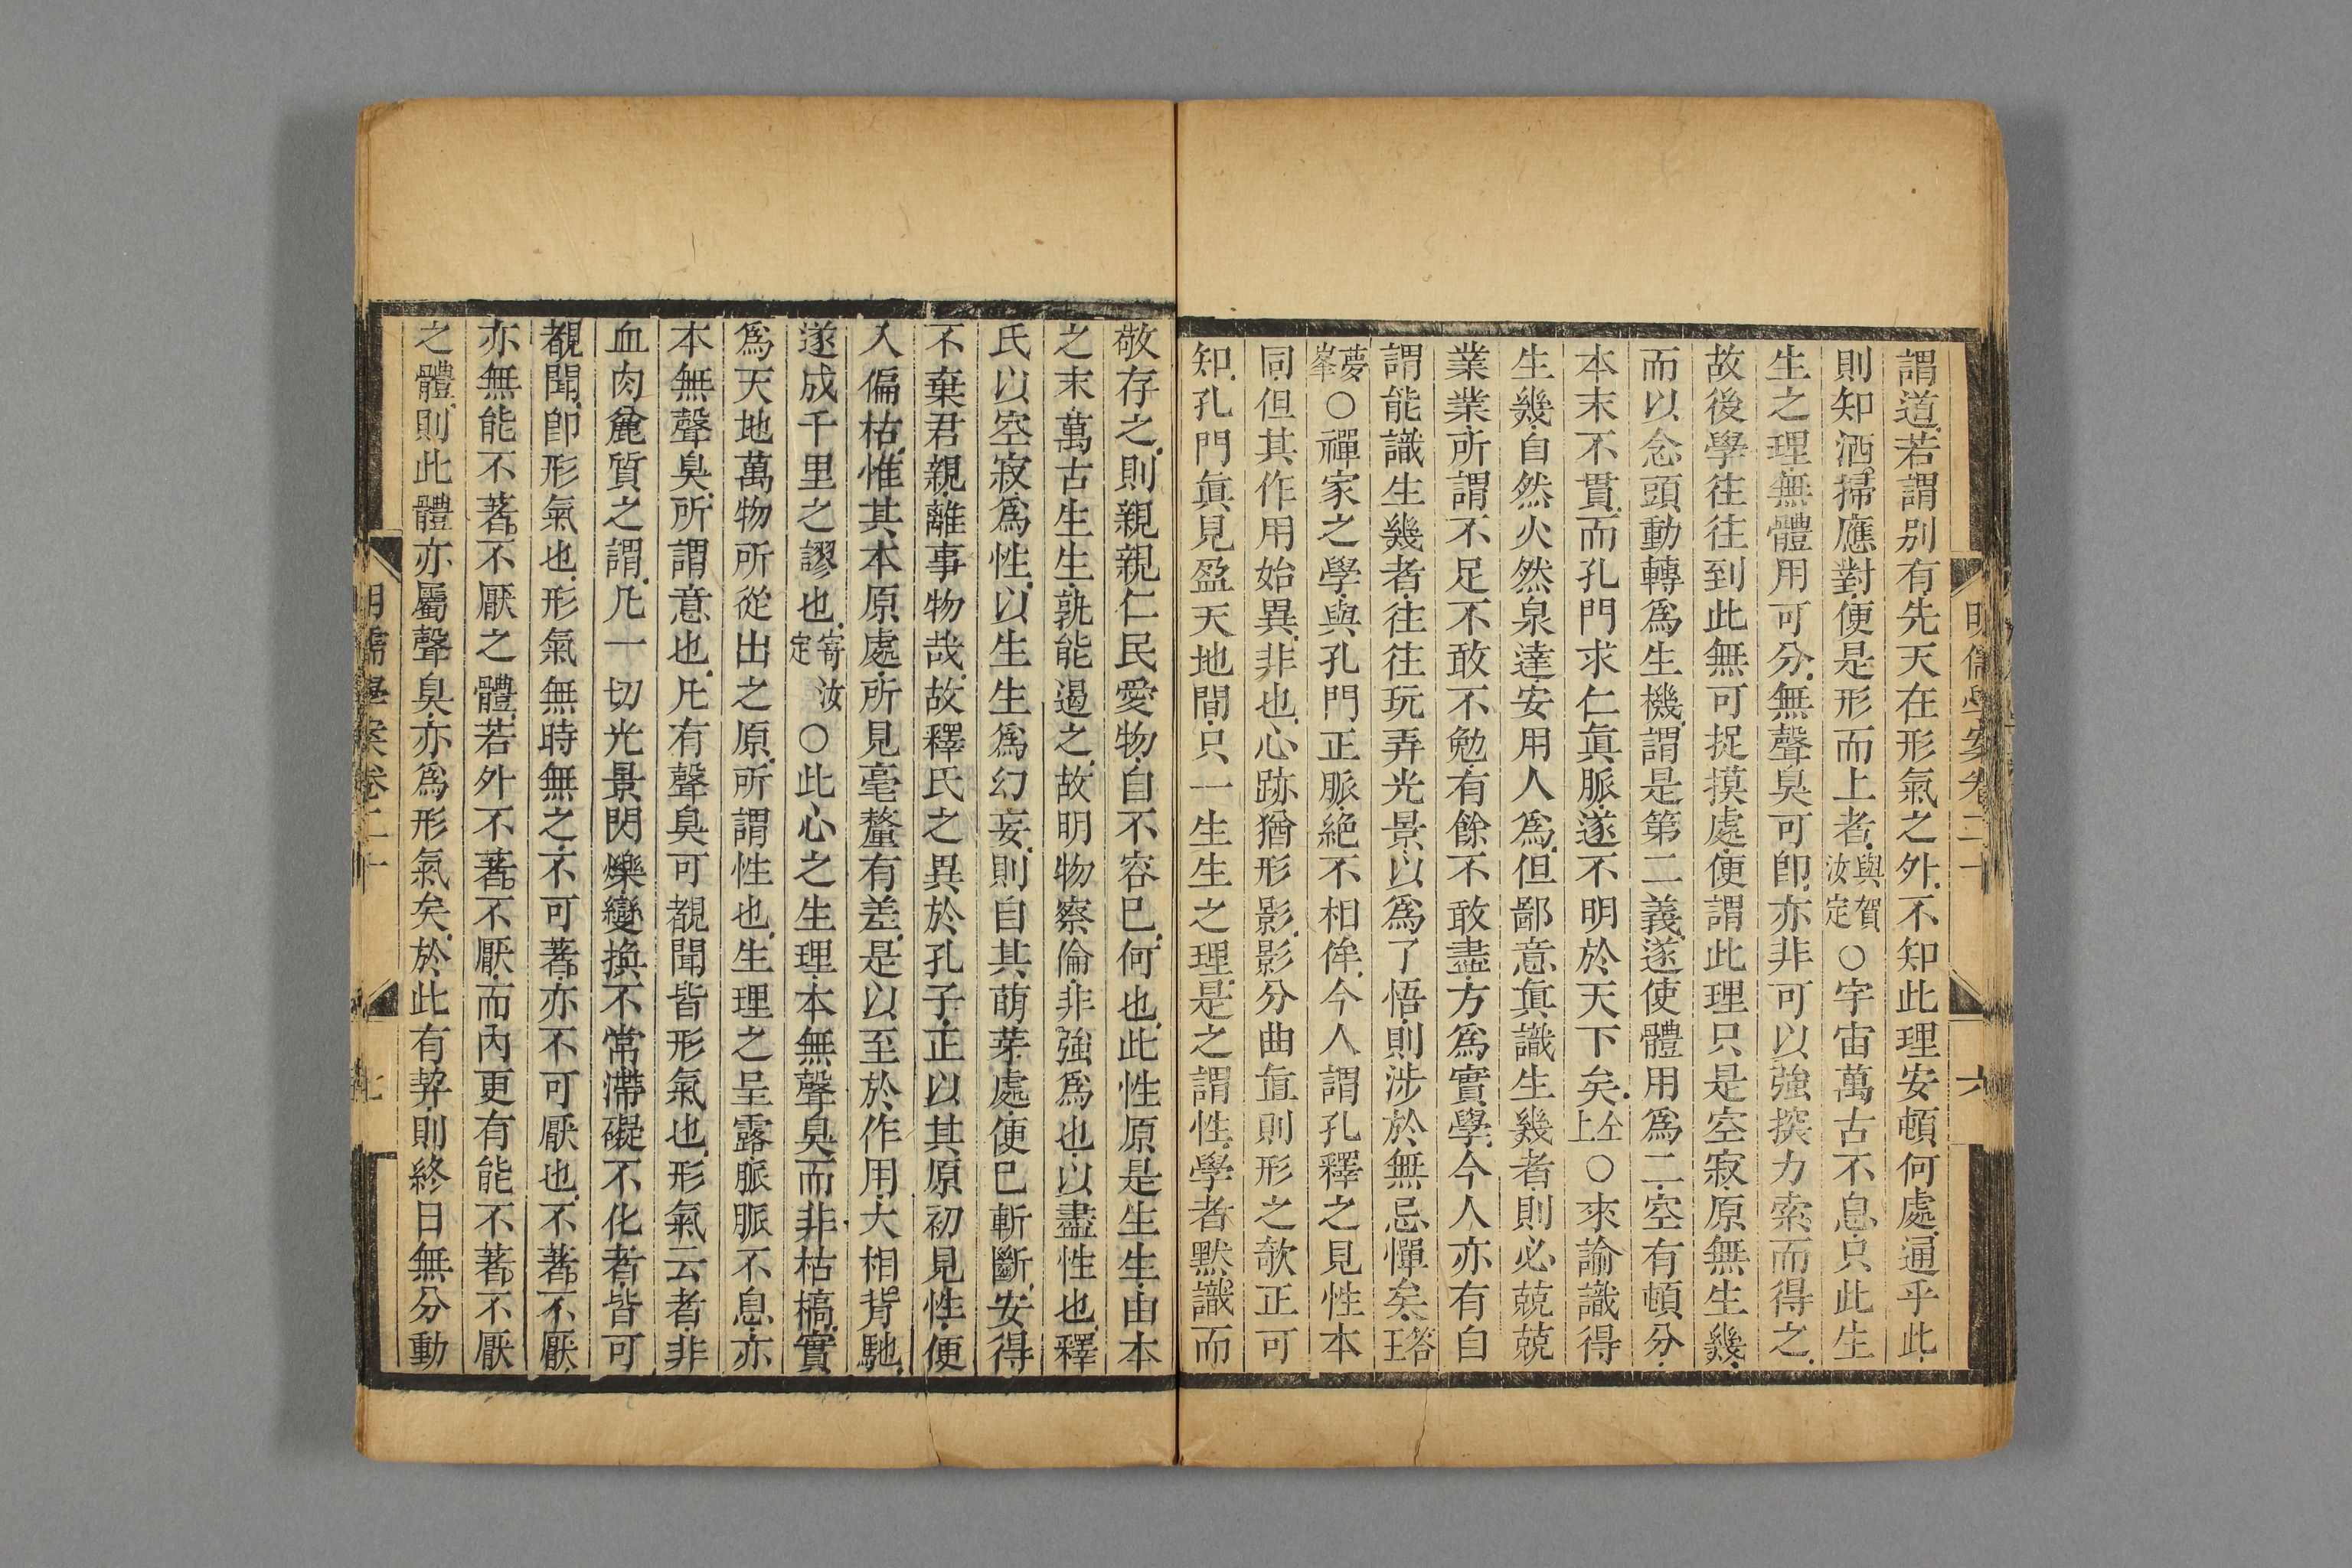 明儒學案卷二十
六
謂道若謂别有先天在形氣之外不知此理安頓何處通乎此
則知洒掃應對便是形而上者與賀汝定○宇宙萬古不息只此生
生之理無體用可分無聲臭可卽亦非可以強探力索而得之
故後學往往到此無可捉摸處便謂此理只是空寂原無生幾
而以念頭動轉爲生機謂是第二義遂使體用爲二空有頓分
本末不貫而孔門求仁眞脈遂不明於天下矣仝上○來諭識得
生幾自然火然泉達安用人爲但鄙意眞識生幾者則必兢兢
業業所謂不足不敢不勉有餘不敢盡方爲實學今人亦有自
謂能識生幾者往往玩弄光景以爲了悟則涉於無忌憚矣答王
夢峯○禪家之學與孔門正脈絶不相侔今人謂孔釋之見性本
同但其作用始異非也心跡猶形影影分曲直則形之欹正可
知孔門眞見盈天地間只一生生之理是之謂性學者默識而
敬存之則親親仁民愛物自不容已何也此性原是生生由本
之末萬古生生孰能遏之故明物察倫非強爲也以盡性也釋
氏以空寂爲性以生生爲幻妄則自其萌芽處便已斬斷安得
不棄君親離事物哉故釋氏之異於孔子正以其原初見性便
入偏枯惟其本原處所見毫釐有差是以至於作用大相背馳
遂成千里之謬也寄汝定○此心之生理本無聲臭而非枯槁實
爲天地萬物所從出之原所謂性也生理之呈露脈脈不息亦
本無聲臭所謂意也凡有聲臭可覩聞皆形氣也形氣云者非
血肉麄質之謂凡一切光景閃爍變換不常滯礙不化者皆可
覩聞卽形氣也形氣無時無之不可著亦不可厭也不著不厭
亦無能不著不厭之體若外不著不厭而內更有能不著不厭
之體則此體亦屬聲臭亦爲形氣矣於此有契則終日無分動
明儒學案卷二十
七